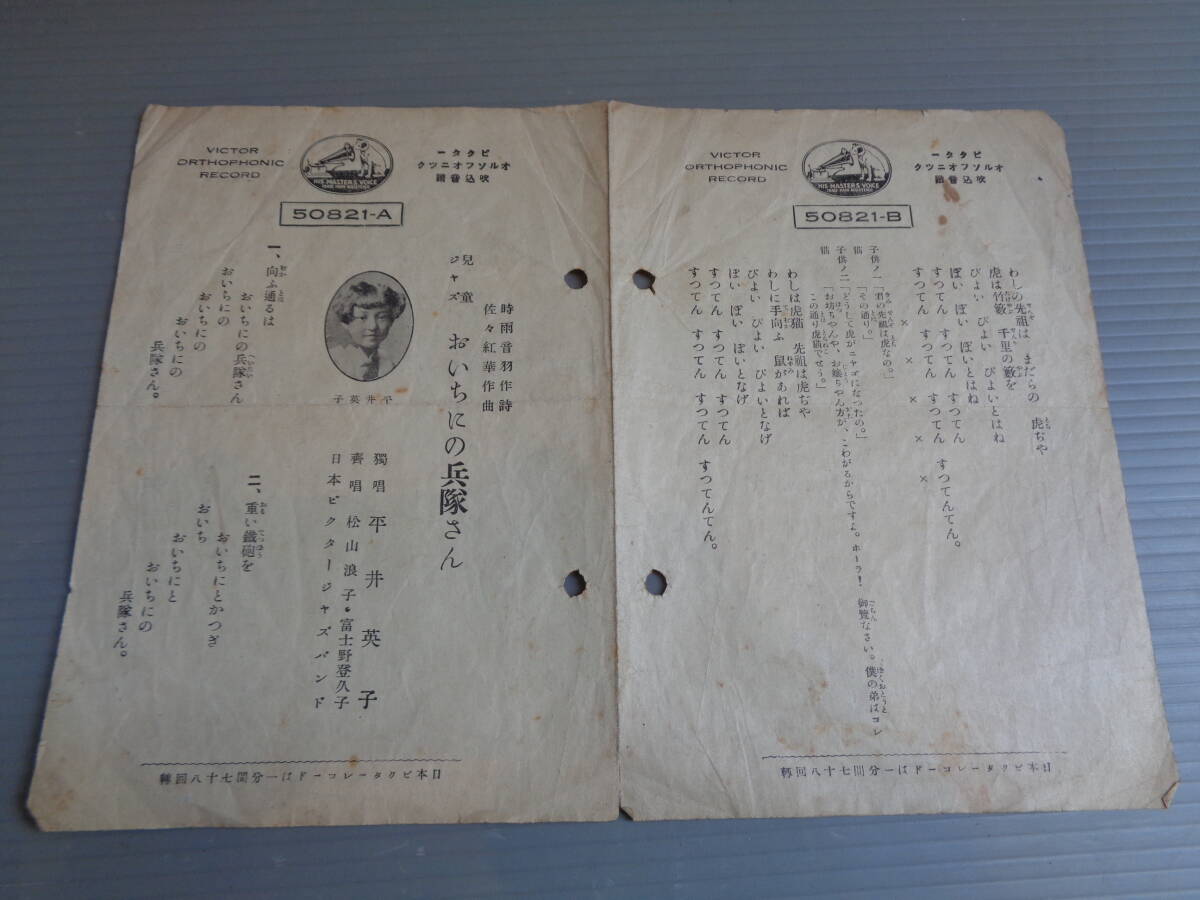 VICTOR
ORTHOPHONIC
RECORD
HIS MASTER'S VOICE
ビクター
オルソフオニツク
吹込音譜
50821-A
時雨音羽作詩
佐々紅華作曲
兒童
ジャズ
おいちにの兵隊さん
獨唱 平井英子
齊唱 松山浪子・富士野登久子
日本ビクタージャズバンド
平井英子
一、向ふ通るは
おいちにの兵隊さん
おいちにの
おいちにの
おいちにの
兵隊さん。
二、重い鐵砲を
おいちにとかつぎ
おいち
おいちにと
おいちにの
兵隊さん。
日本ビクターレコードは一分間七十八回轉
VICTOR
ORTHOPHONIC
RECORD
HIS MASTERS VOICE
ビクター
オルソフオニツク
吹込音譜
50821-B
わしの先祖は まだらの 虎ぢや
虎は竹籔 千里の籔を
ぴよい ぴよい ぴよいとはね
ぽい ぽい ぽいとはね
すつてん すつてん すつてん
すつてん すつてん すつてん すつてんてん。
× × × × ×
子供ノ一「君の先祖は虎なの。」
猫 「その通り。」
子供ノ二「どうして虎がニヤゴになつたの。」
猫 「お坊ちやんや、お孃ちやん方が、こわがるからですよ。ホーラ! 御覽なさい。僕の弟はコレ
この通り虎猫でせう。」
わしは虎猫 先祖は虎ぢや
わしに手向ふ 鼠があれば
ぴよい ぴよい ぴよいとなげ
ぽい ぽい ぽいとなげ
すつてん すつてん すつてん
すつてん すつてん すつてん すつてんてん。
日本ビクターレコードは一分間七十八回轉